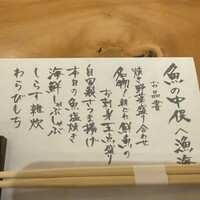 魚の中俣へ漁海
お品書
焼き野菜盛り合わせ
名物 朝どれ鮮魚の
お刺身五点盛り
自家製さつま揚げ
本日の魚塩焼き
海鮮しゃぶしゃぶ
しらす雑炊
わらびもち